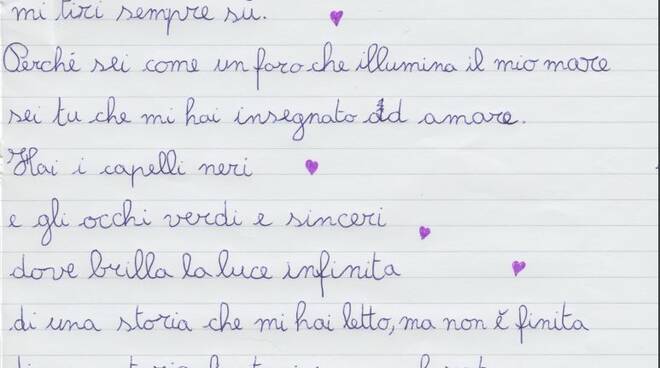 mi tiri sempre sù.
Perché sei come un faro che illumina il mio mare
sei tu che mi hai insegnato ad amare.
Hai i capelli neri
e gli occhi verdi e sinceri
dove brilla la luce infinita
di una storia che mi hai letto, ma non è finita